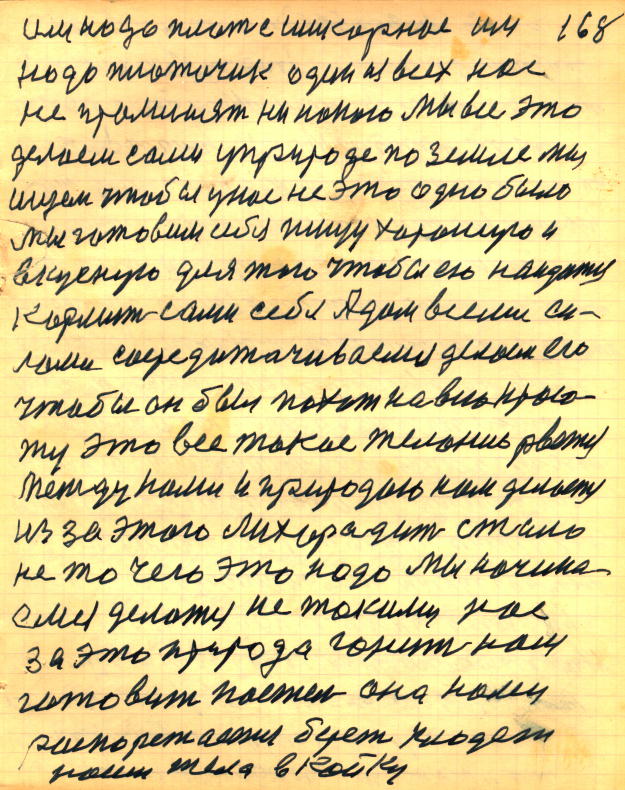 им надо плоте шикарное им 168
надо платочик один из всех нас
не променят ни на кого Мы все это
делаем сами у природе по земле мы
ищем чтобы у нас не это одно было
Мы готовим себя пищу харошую и
вкусную для того чтобы ею
кормит сами себя А дом всеми си-
лами делаем его
чтобы он был похож на всю красо-
ту это все такое желание
между нами и природаю нам
из за этого лихорадит стало
не то чего это надо Мы начина-
емся не такими нас
за это природа гонит нам
готовит постел она нами
распорежается будет кладет
наши тела в койку